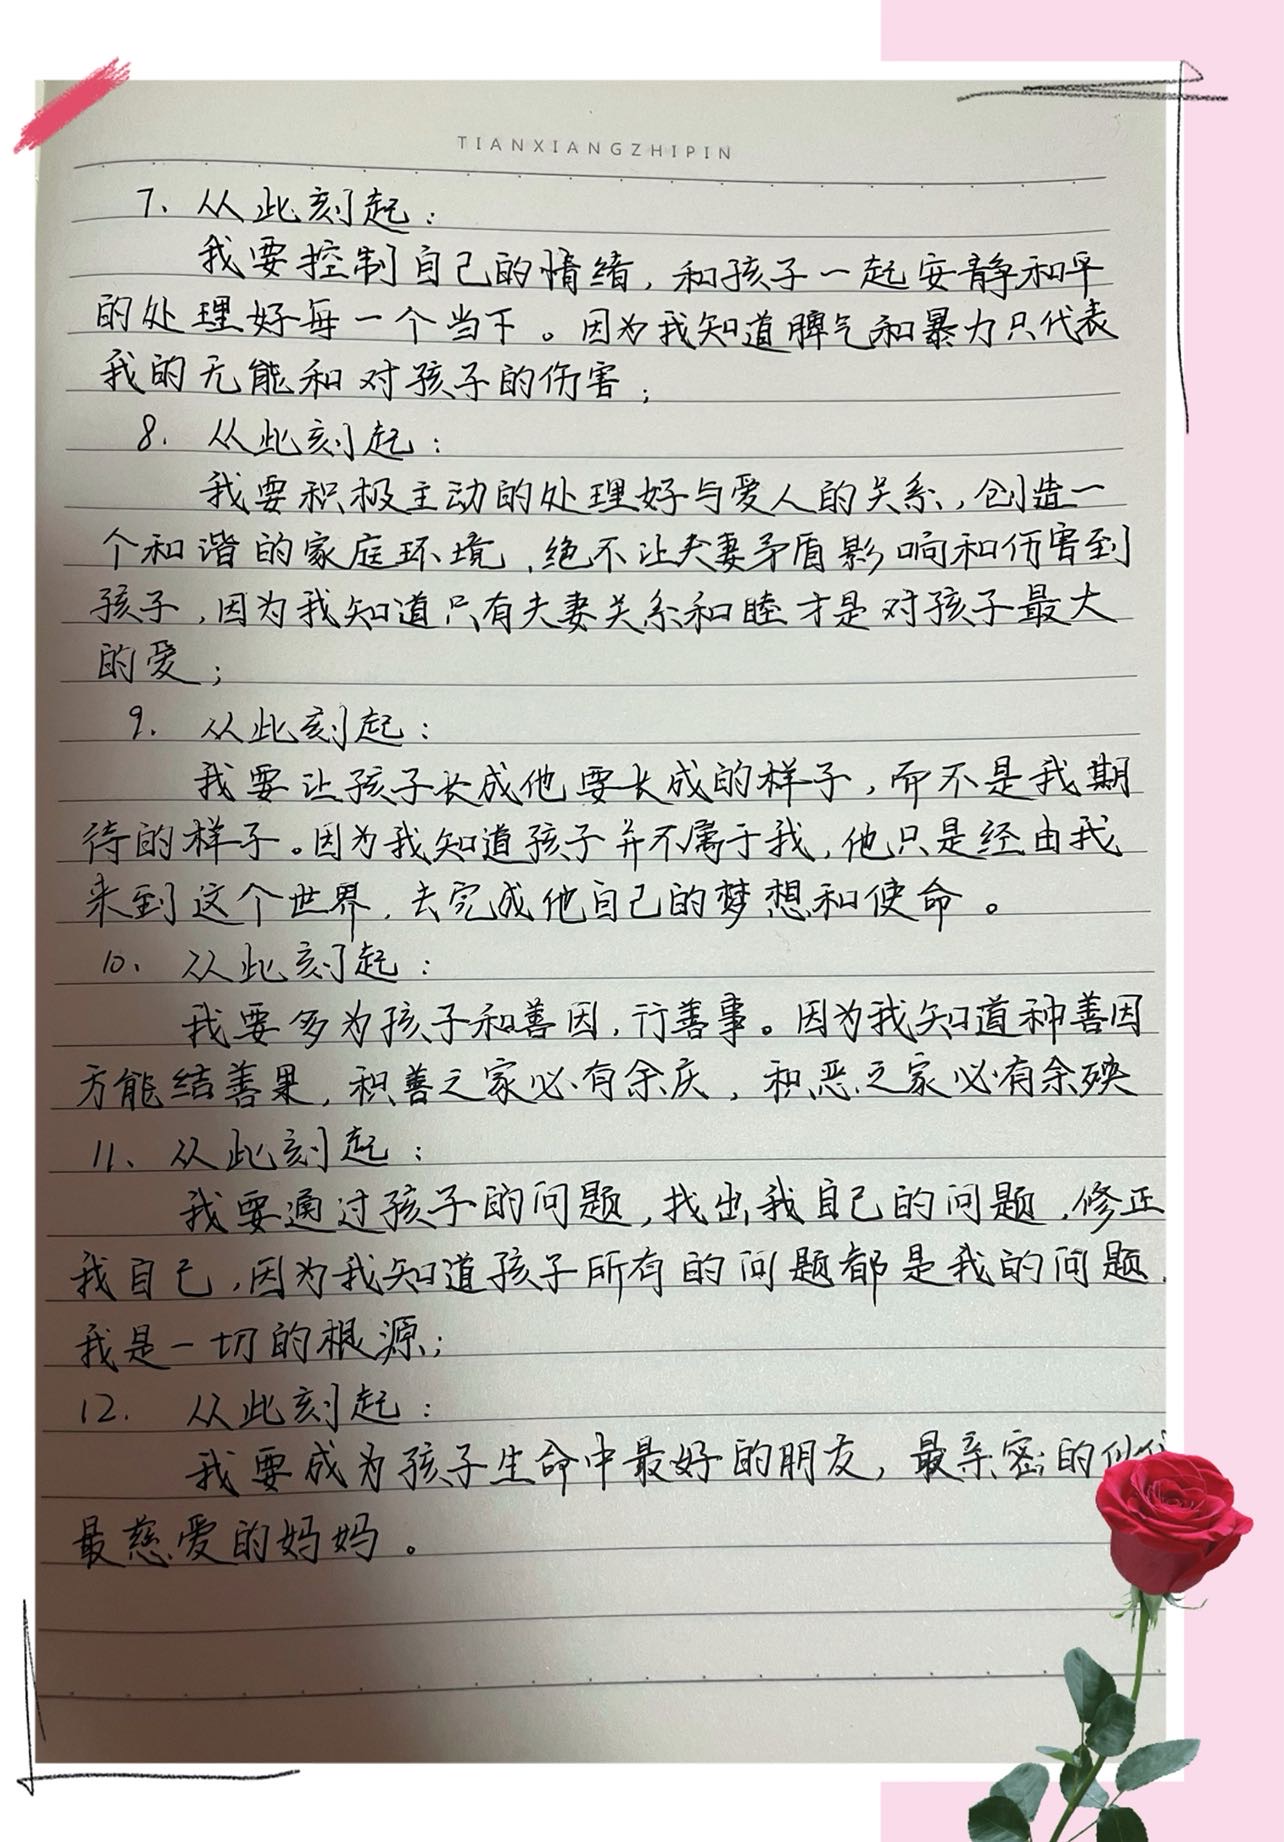 TIANXIANGZHIPIN
7、从此刻起：
我要控制自己的情绪，和孩子一起安静和平
的处理好每一个当下。因为我知道脾气和暴力只代表
我的无能和对孩子的伤害；
8. 从此刻起：
我要积极主动的处理好与爱人的关系，创造一
个和谐的家庭环境，绝不让夫妻矛盾影响和伤害到
孩子，因为我知道只有夫妻关系和睦才是对孩子最大
的爱；
9. 从此刻起：
我要让孩子长成他要长成的样子，而不是我期
待的样子。因为我知道孩子并不属于我，他只是经由我
来到这个世界，去完成他自己的梦想和使命。
10、从此刻起：
我要多为孩子和善因，行善事。因为我知道种善因
方能结善果，积善之家必有余庆，积恶之家必有余殃
11、从此刻起：
我要通过孩子的问题，找出我自己的问题，修正
我自己，因为我知道孩子所有的问题都是我的问题，
我是一切的根源；
12. 从此刻起：
我要成为孩子生命中最好的朋友，最亲密的伙
最慈爱的妈妈。